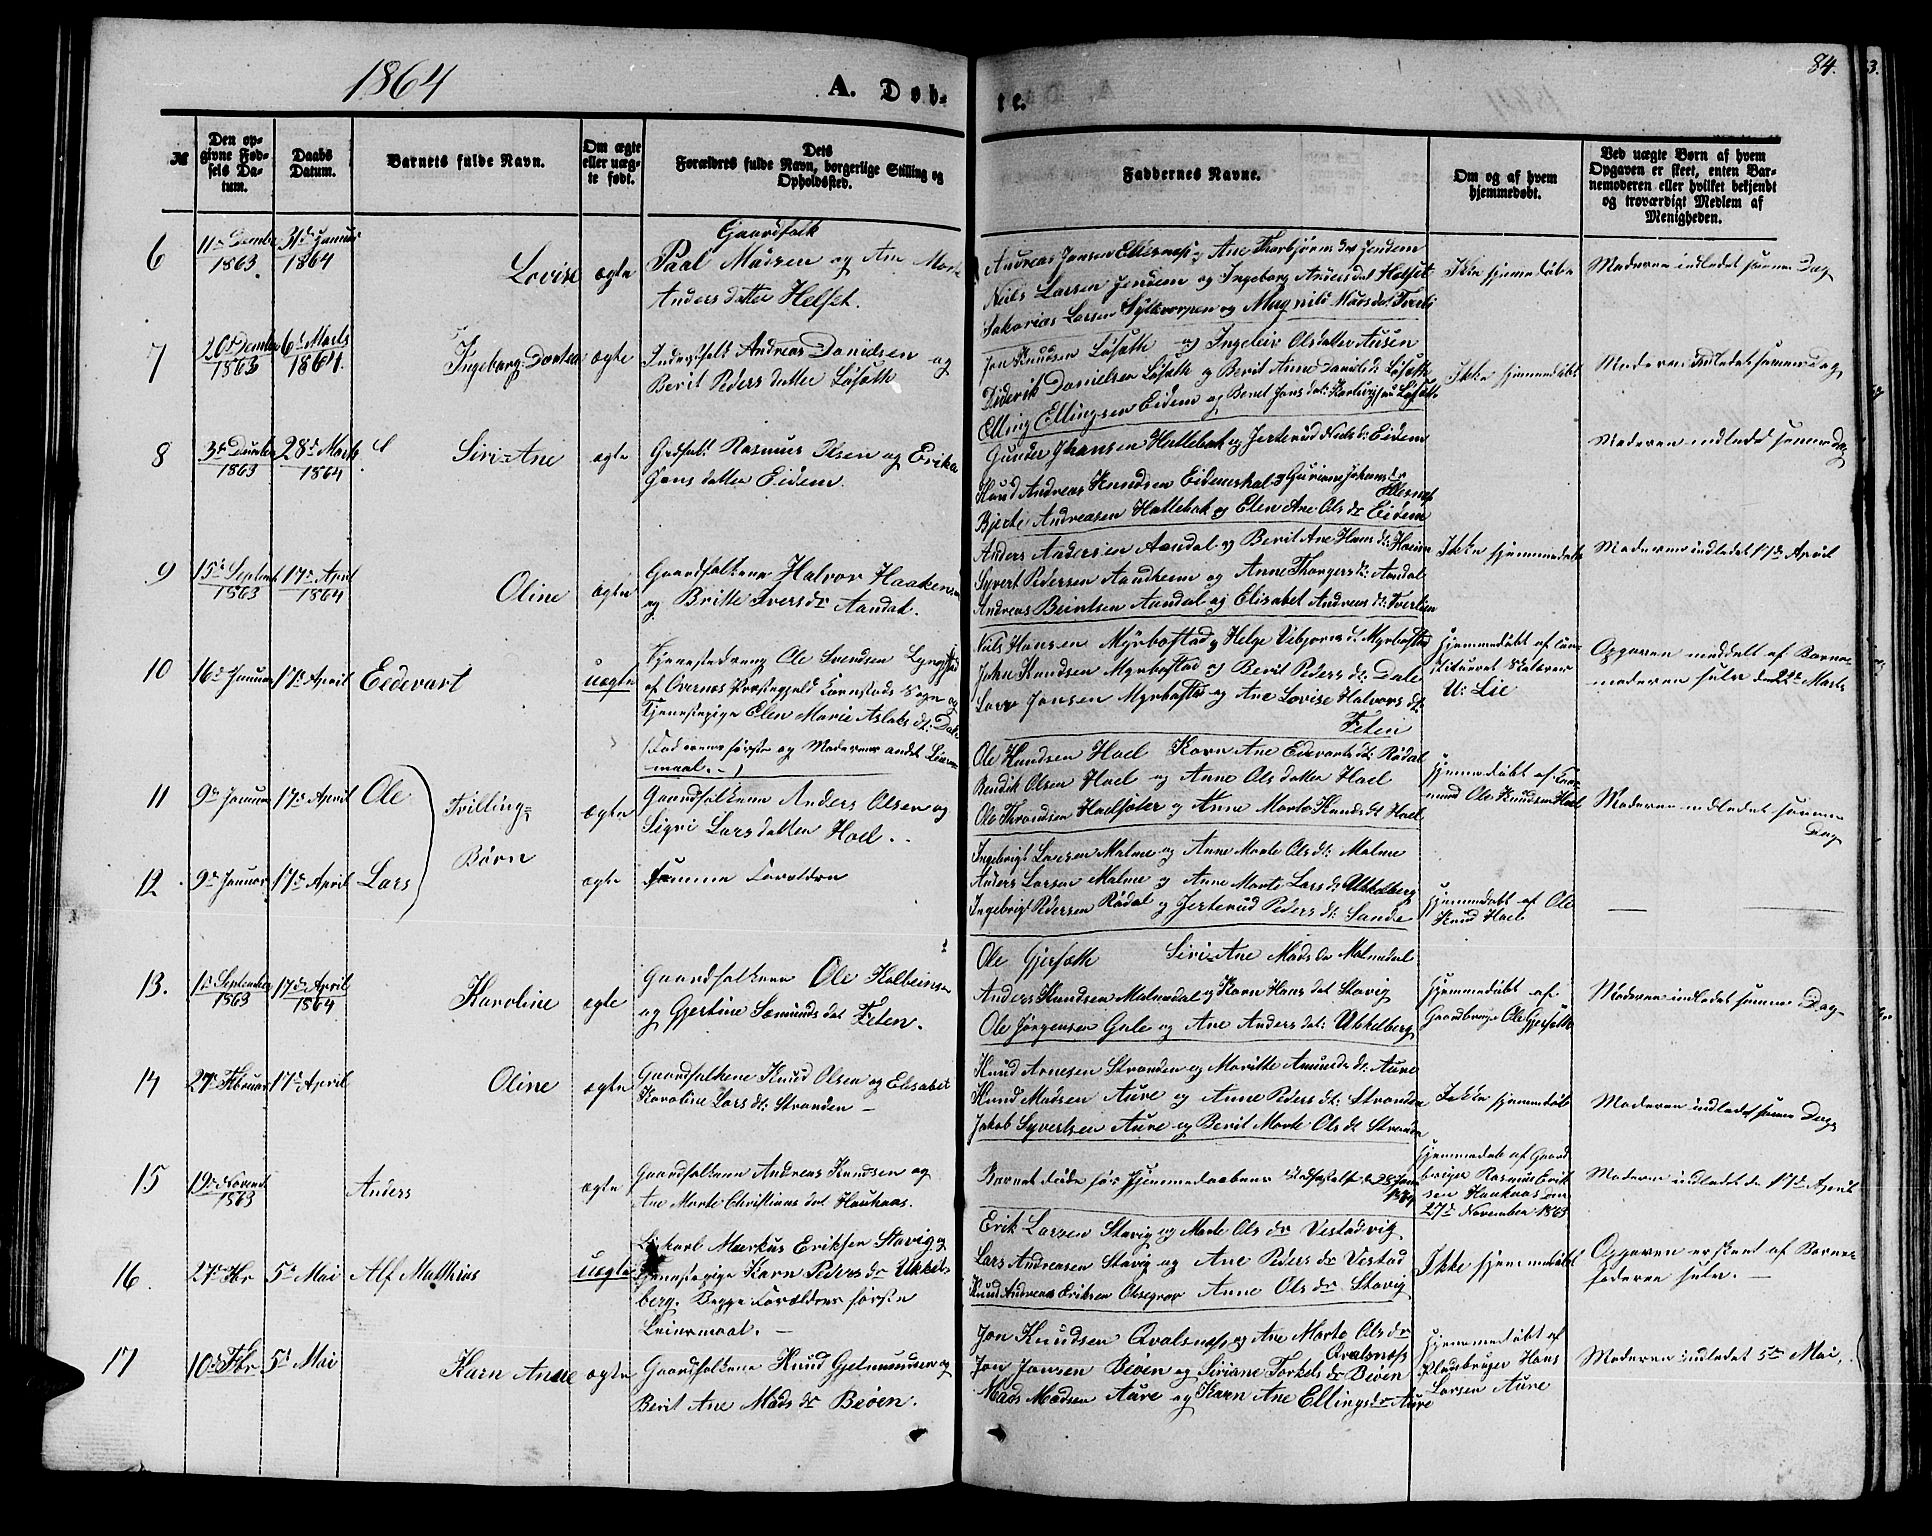 1864
A. Døb-
te.
84.
3.
№
Den op-
givne Fød-
sels Da-
tum.
Daabs
Datum.
Barnets fulde Navn.
Om ægte
eller uæg-
te født.
Dets
Forældres fulde Navn, borgerlige Stilling og
Opholdssted.
Faddernes Navne.
Om og af hvem
hjemmedøbt.
Ved uægte Børn af hvem
Opgaven er skeet, enten Bar-
nemoderen eller hvilket bekjendt
og troværdigt Medlem af
Menigheden.
6
1863
1864
Lovise
ægte
Gaardfolk
Paal Madsen og Ane Marte
Anders datter Helset.
Andreas Jansen Ellesnes og Ane Thorbjørns dr Jendem
Niels Larsen Jendem og Ingeborg Anders dat Helset
Sakarias Larsen Syltevorpen og Magnild Mads dat Tverli
Ikke hjemmedøbt
Moderen indledet samme Dag
7
20de Decembr 6te Marts
1863 1864.
Ingeborg Dorthea
ægte
Inderstfolk Andreas Danielsen og
Berit Peders datter Løsæth
Jon Knudsen Løsæth og Ingeleiv Olsdatter Ausen
Diderik Danielsen Løsæth og Berit Anne Daniels dt Løsæth
Elling Ellingsen Eidem og Beret Jons dat:
Ikke hjemmedøbt
Moderen Indledet samme Dag
8
28de Marts
1863 1864
Siri-Ane
ægte
Grdfolk Rasmus Olsen og Erika
Jons datter Eidem.
Gunder Hansen Hallebak og Jertrud Niels dt Eidem
Knud Andreas Knudsen Eidemshal og Guriane Johans dr
Ellesnes
Bjerte Andreasen Hallebak og Elen Ane Ols dr Eidem
Moderen indledd samme Dag
9
15de Septemb 17de April
1863 1864
Oline
ægte
Gaardfolkene Halvor Haakensen
og Britte Ivers dr Aandal.
Anders Andersen Aandal og Berit Ane Hans dt:
Syvert Pedersen Aandheim og Anne Thorgers dt: Aandal
Andreas Berintsen Aandal og Elisabet Andreas dt: Tverlien
Ikke hjemmedøbt
Moderen indledet 17de April
10
16de Januar 17de April
Edevart
uægte
Tjenestedreng Ole Svendsen
af Overnes Præstegjeld Kornstads Sogn og
Tjenestepige Elen Marie Aslaks dt: Dale
(Faderens første og Moderens andet Leier-
maal.-)
Niels Hansen Myrbostad og Helge Vibjørns dt Myrbostad
John Knudsen Myrbostad og Berit Peders dt: Dale
Lars Jansen Myrbostad og Ane Lovise Halvors dt:
Feten
hjemmedøbt af con-
stitueret Skolelærer
U: Lie
Opgaven meddelt af Barne-
moderen selv den 22de Marts
11
9de Januar 17de April
Ole
Tvilling-
Børn
ægte
Gaardfolkene Anders Olsen og
Sigri Lars datter Hoel.
Ole Knudsen Hoel Karn Ane Edevarts dt: Rødal
Bendik Olsen Hoel og Anne Ols datter Hoel
Ole Throndsen Hoelsæter og Anne Marte Knuds dt Hoel
hjemmedøbt af Gaar-
mand Ole Knudsen Hoel
Moderen indledet samme
Dag
12
9de Januar 17de April
Lars
ægte
samme Forældre
Ingebrigt Larsen Malme og Anne Marte Ols dt: Malme
Anders Larsen Malme og Anne Marte Lars dt Ukkelberg
Ingebrigt Pedersen Rødal og Jertrud Peders dt: Sande
hjemmedøbt af Ole
Knud Hoel
13.
1ste September 17de April
1863 1864
Karoline
ægte
Gaardfolkene Ole Kolbeinsen
og Gjertine Sæmunds dat Feten.
Ole Gjersæth Siri-Ane Mads dr Malmedal
Anders Knudsen Malmedal og Karn Hans dat Stavig
Ole Jørgensen Gule og Ane Anders dat: Ukkelberg
hjemmedøbt af
Gaardbruger Ole Gjersæth
Moderen indledet samme Dag-
14
27de Februar 17de April
Oline
ægte
Gaardfolkene Knud Olsen og Elisabet
Karoline Lars dt: Stranden -
Knud Arnesen Stranden og Maritte Amunds dt: Aure
Knud Madsen Aure og Anne Peders dt: Stranden
Jakob Syvertsen Aure og Berit Marte Ols dt Stranden
Ikke hjemmedøbt
Moderen indledet samme Dag
15
19de Novemb
1863
Anders
ægte
Gaardfolkene Andreas Knudsen og
Ane Marte Christians dat Hauknæs.
Barnet døde før Hjemmedaabens Stadfæstelse
hjemmedøbt af Gaard-
bruger Rasmus Erik-
sen Hauknæs den
27de November 1863
Moderen indledet de 17de April
16.
27de Fbr 5te Mai
Alf Mathias
uægte
Ungkarl Markus Eriksen Stavig og
Tjenestepige Karn Peders dr Ukkel-
berg. Begge Forældres første
Leiermaal. -
Erik Larsen Stavig og Marte Ols dr Vestadvig
Lars Andreasen Stavig og Ane Peders dr Vestad
Knud Andreas Eriksen Olsegrav Anne Ols dr Stavig
Ikke hjemmedøbt
Opgaven erkient af Barne-
faderen selv. -
17
10de Fbr 5te Mai
Karn Anne
ægte
Gaardfolkene Knud Gjelmundsen og
Berit Ane Mads dr Beøen.
Jon Knudsen Qvalsnes og Ane Marte Ols dr
Qvalsnes
Jon Jonsen Beøen og Siriane Torkels dr Beøen
Mads Madsen Aure og Karn Ane Ellings dr Aure
hjemmedøbt af
Pladsbruger Hans
Larsen Aure
Moderen indledet 5te Mai.